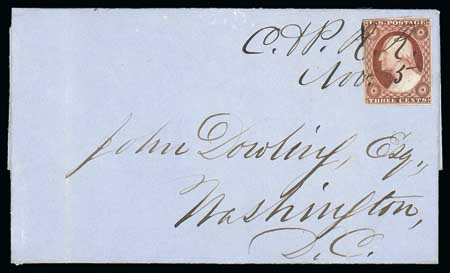 C. & P. R R
Nov. 5
U.S. POSTAGE
THREE CENTS
John Dowling, Esq.,
Washington,
D.C.